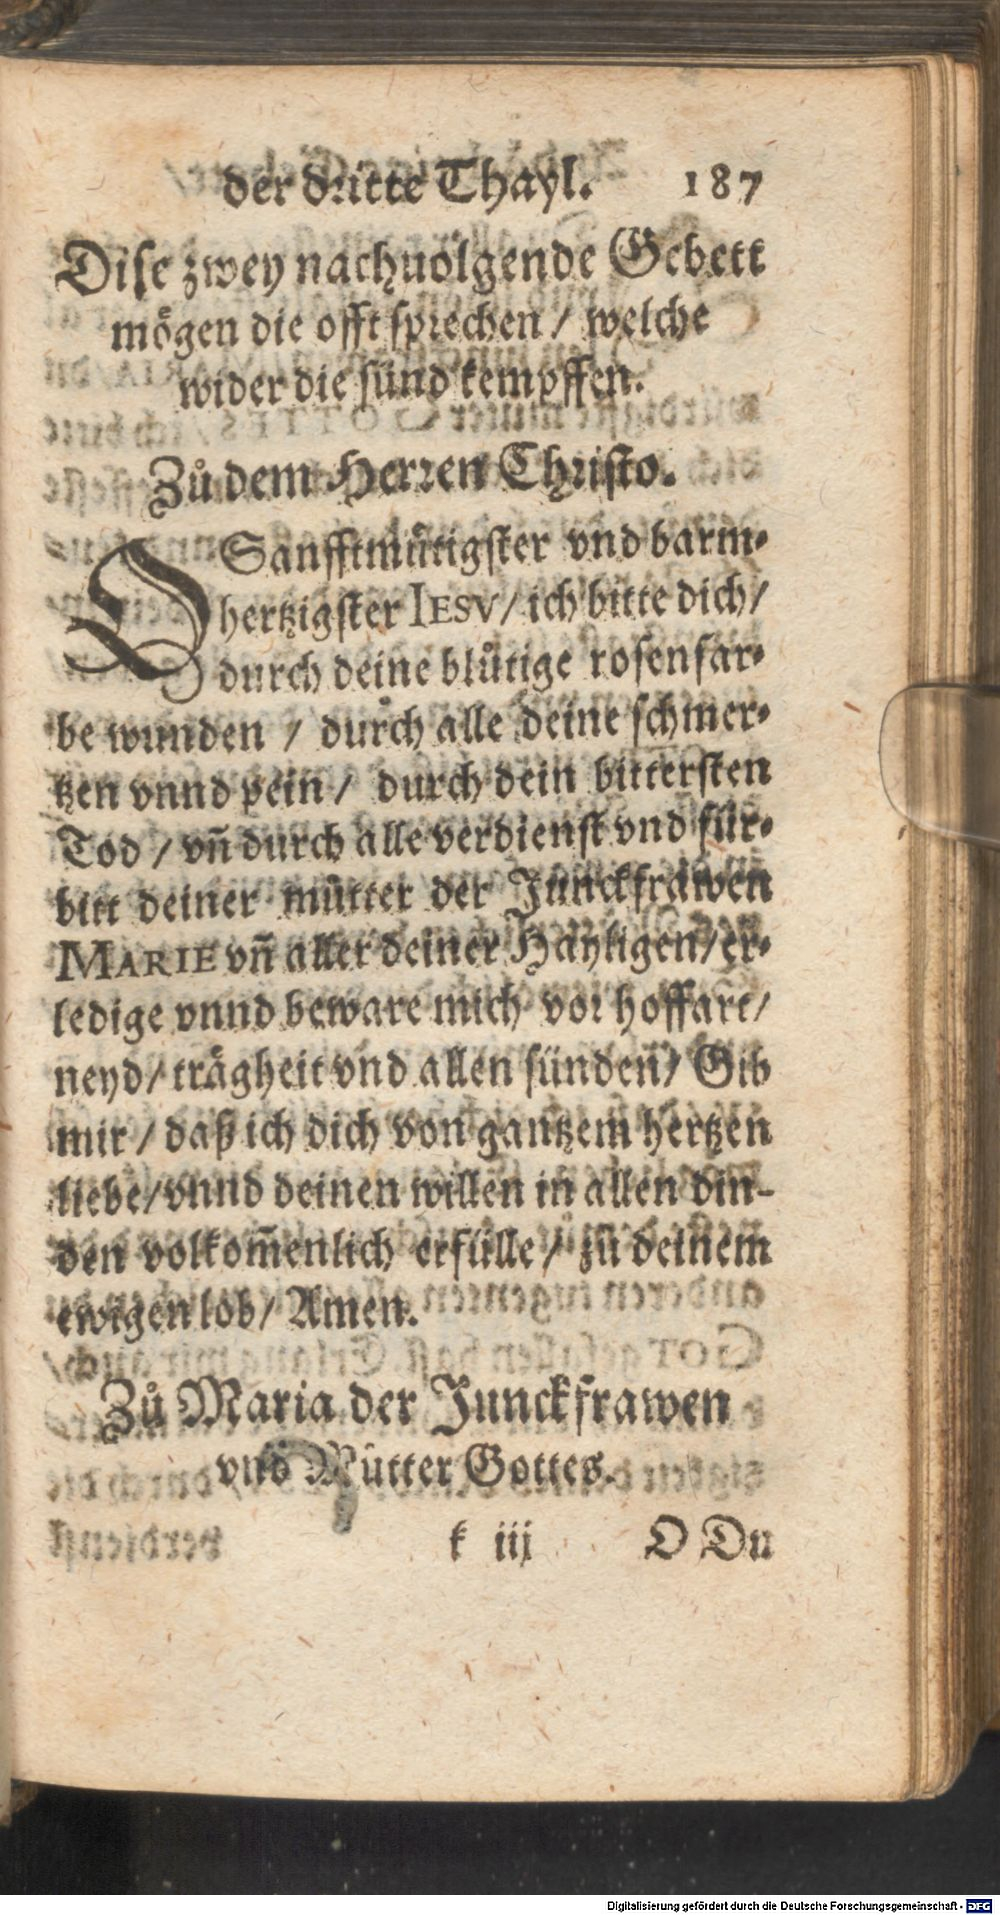 der dritte Thayl. 187
Dise zwey nachuolgende Gebett
mögen die offt sprechen / welche
wider die sünd kempffen.
Zů dem Herren Christo.
O Sanfftmůtigster vnd barm-
hertzigster IESV / ich bitte dich /
durch deine blůtige rosenfar-
be wunden / durch alle deine schmer-
tzen vnnd pein / durch dein bittersten
Tod / vñ durch alle verdienst vnd für-
bitt deiner můtter der Junckfrawen
MARIE vñ aller deiner Hayligen / er-
ledige vnnd beware mich vor hoffart /
neyd / trågheit vnd allen sünden / Gib
mir / daß ich dich von gantzem hertzen
liebe / vnnd deinen willen in allen din-
den volkom̃enlich erfülle / zů deinem
ewigen lob / Amen.
Zů Maria der Junckfrawen
vnd Můtter Gottes.
k iij O Du
Digitalisierung gefördert durch die Deutsche Forschungsgemeinschaft - DFG